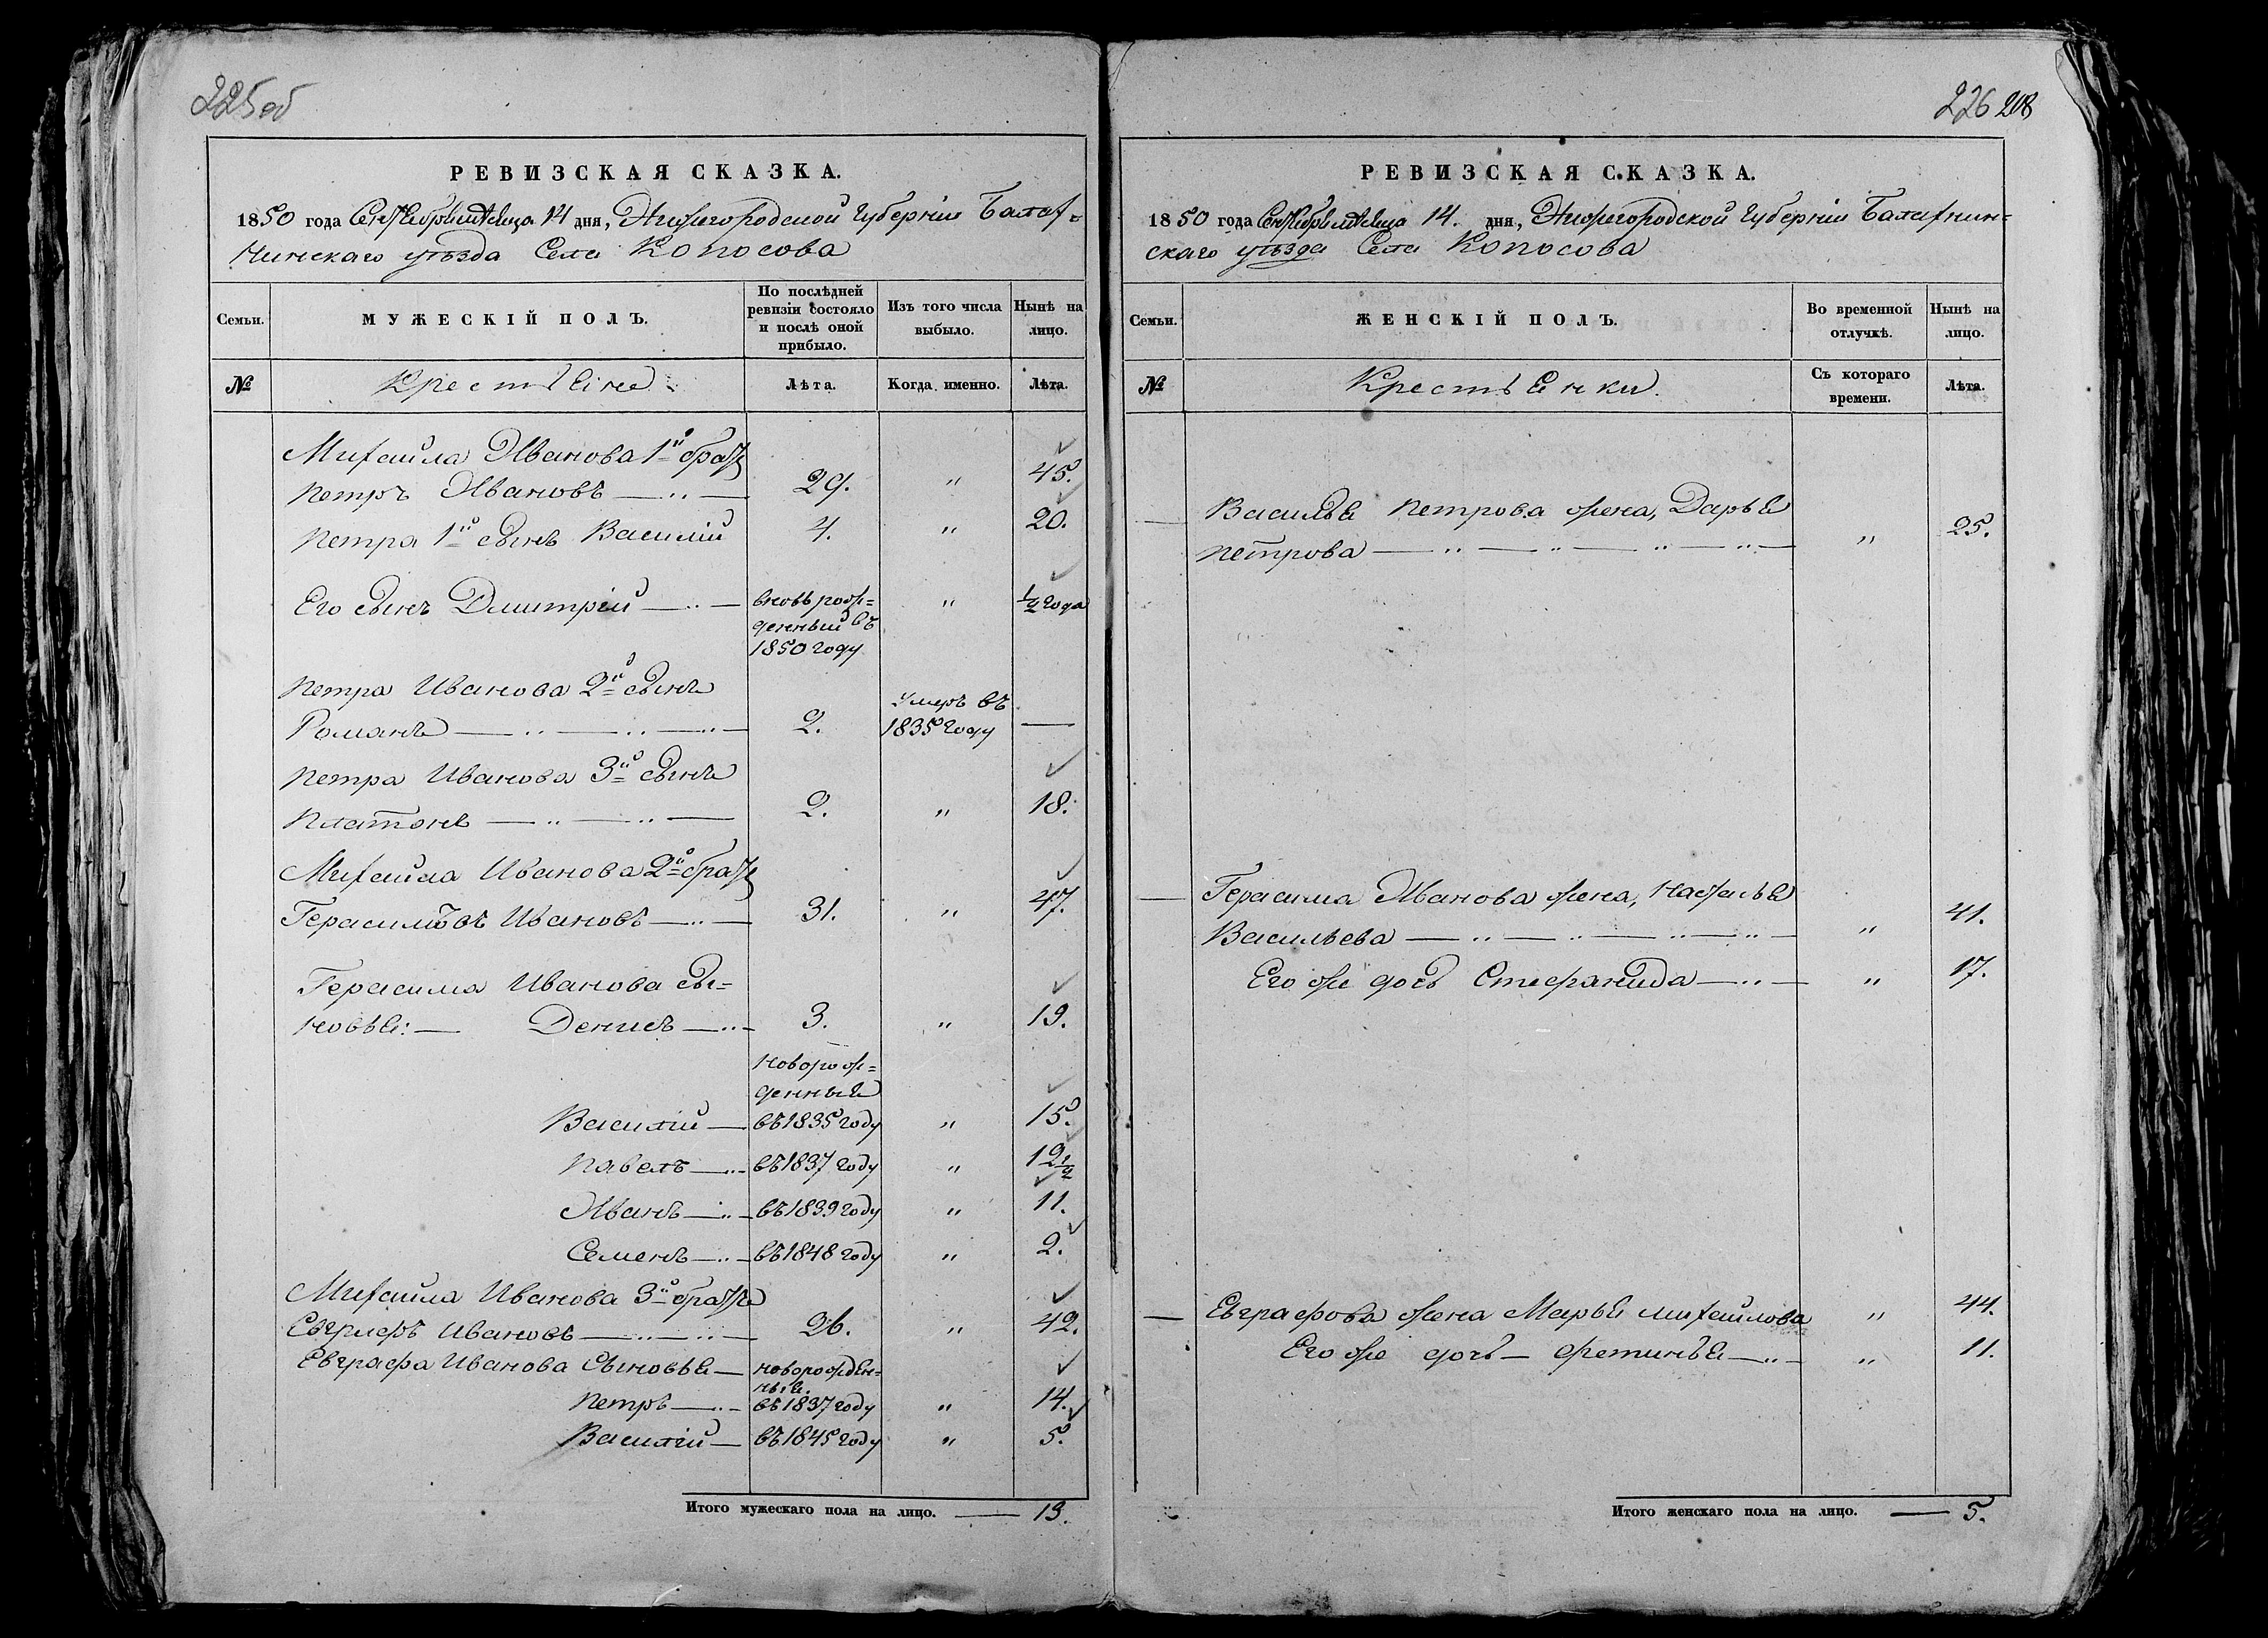 225об
РЕВИЗСКАЯ СКАЗКА.
1850 года Сентября мѣсяца 14 дня, Нижегородской Губерніи Балах-
нинскаго уѣзда Села Копосова
Семьи.
МУЖЕСКІЙ ПОЛЪ.
По послѣдней ревизіи состояло и послѣ оной прибыло.
Изъ того числа выбыло.
Нынѣ на лицо.
№
Крестьяне
Лѣта.
Когда именно.
Лѣта.
Михаила Иванова 1й братъ
Петръ Ивановъ — 29. " 45.
Петра 1й сынъ Василій 4. " 20.
Его сынъ Дмитрій — вновь рож- " ½ года
денный въ
1850 году
Петра Иванова 2й сынъ
умеръ въ
Романъ — 2. 1835 году —
Петра Иванова 3й сынъ
Платонъ — 2. " 18.
Михаила Иванова 2й братъ
Герасимъ Ивановъ — 31. " 47.
Герасима Иванова сы-
новья: — Денисъ — 3. " 19.
новорож-
денный
Василій — въ 1835 году " 15.
Павелъ — въ 1837 году " 12½
Иванъ — въ 1839 году " 11.
Семенъ — въ 1848 году " 2.
Михаила Иванова 3й братъ
Евграфъ Ивановъ — 26. " 42.
Евграфа Иванова Сыновья — новорожден-
ные.
Петръ — въ 1837 году " 14.
Василій — въ 1845 году " 5.
Итого мужескаго пола на лицо. — 13.
226 208
РЕВИЗСКАЯ СКАЗКА.
1850 года Сентября мѣсяца 14. дня, Нижегородской Губерніи Балахнин-
скаго уѣзда Села Копосова
Семьи.
ЖЕНСКІЙ ПОЛЪ.
Во временной отлучкѣ.
Нынѣ на лицо.
№
Крестьянки.
Съ котораго времени.
Лѣта.
— Василья Петрова жена, Дарья
Петрова — " 25.
— Герасима Иванова жена, Наталья
Васильева — " 41.
Его же дочь Стефанида — " 17.
— Евграфова жена Марья Михайлова " 44.
Его же дочь — Фетинья — " 11.
Итого женскаго пола на лицо. — 5.